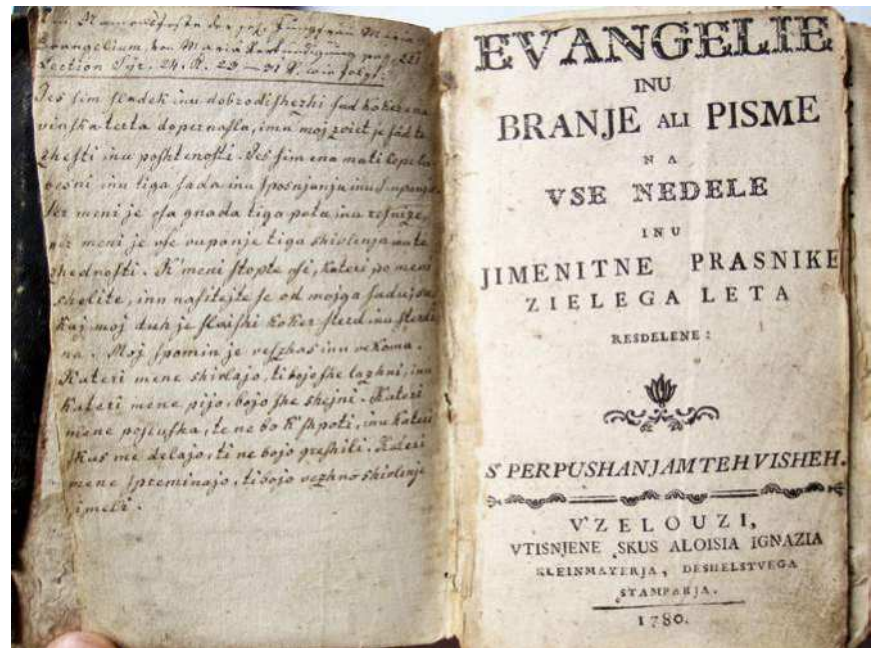 Evangelium von Maria Verkündigung pag. 221
Lection Syr. 24. K. 23 — 31 V. wie folgt:
Jes sim sladek inu dobrodishezhi sad koker ena
vinska terta dopernasla, inu moj zviet je sad te
zhesti inu poshtenosti. Jes sim ena mati lope lu-
besni inu tiga sada inu sposnjanja inu
Per meni je vsa gnada tiga pota inu resnize,
per meni je vse vupanje tiga shivlenja inu te
zhednosti. K'meni stopte vsi, kateri po meni
shelite, inu nasitejte se od mojga sadu;
kaj moj duh je slaishi koker sterd inu sterdi-
na. Moj spomin je veszhas inu vekoma.
Kateri mene shivlajo, ti bojo she lazhni, inu
kateri mene pijo, bojo she shejni. Kateri
mene poslusha, te ne bo k'shpoti, inu kateri
skus me delajo, ti ne bojo greshili. Kateri
mene spreminajo, ti bojo vezhno shivlenje
imeli.
EVANGELIE
INU
BRANJE ALI PISME
NA
VSE NEDELE
INU
JIMENITNE PRASNIKE
ZIELEGA LETA
RESDELENE:
S' PERPUSHANJAM TEH VISHEH.
V' ZELOUZI,
VTISNJENE SKUS ALOISIA IGNAZIA
KLEINMAYERJA, DESHELSTVEGA
STAMPARJA.
1780.